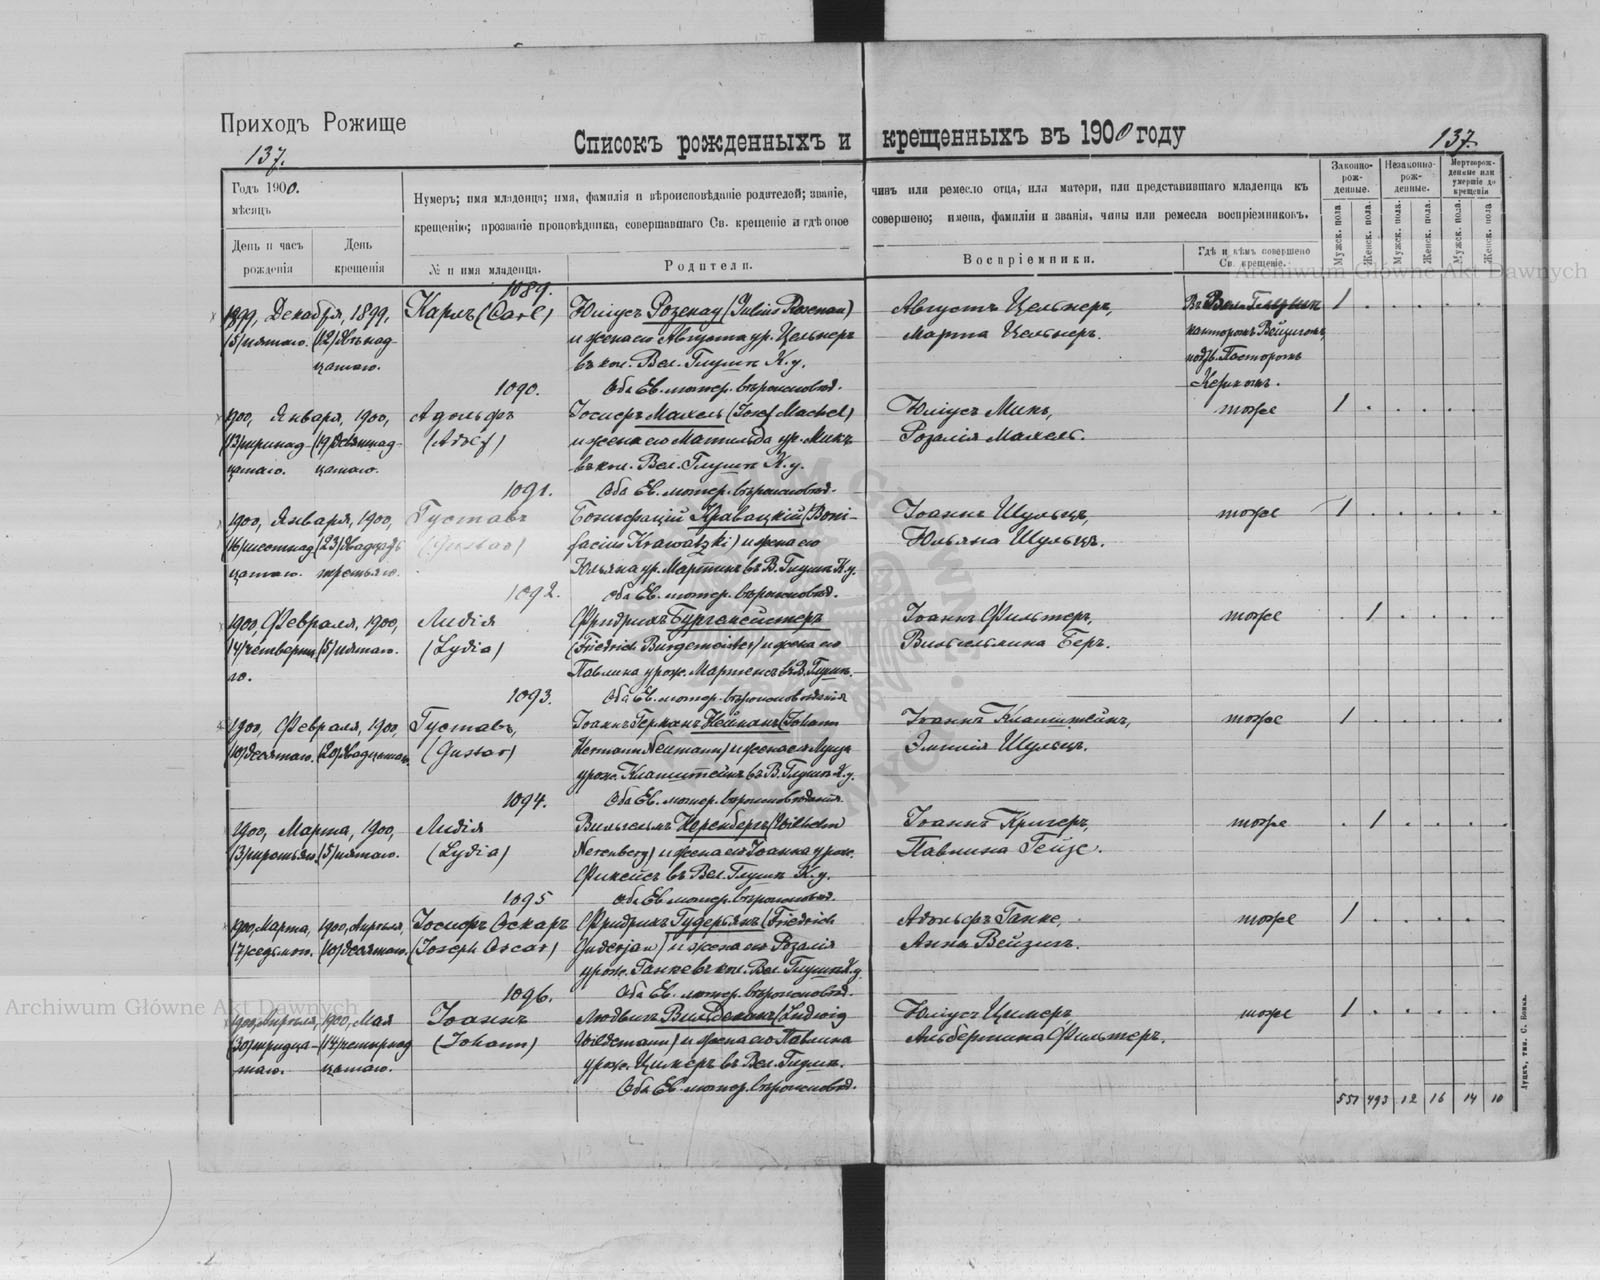 Приходъ Рожище
Списокъ рожденныхъ и крещенныхъ въ 1900 году
137.
137.
Годъ 1900.
мѣсяцъ
День и часъ рожденія
День крещенія
Нумеръ; имя младенца; имя, фамилія и вѣроисповѣданіе родителей; званіе, чинъ или ремесло отца, или матери, или представившаго младенца къ
крещенію; прозваніе проповѣдника, совершавшаго Св. крещеніе и гдѣ оное совершено; имена, фамиліи и званія, чины или ремесла воспріемниковъ.
№ и имя младенца.
Родители.
Воспріемники.
Гдѣ и кѣмъ совершено Св. крещеніе.
Законно-рож-денные.
Незаконно-рож-денные.
Мертворож-денные или умершіе до крещенія
Мужск. пола
Женск. пола.
Мужск. пола.
Женск. пола.
Мужск. пола.
Женск. пола
Archiwum Główne Akt Dawnych
1089.
1899, Декабря, 1899, Карлъ (Carl) Юліусъ Розенау (Julius Rosenau) Августъ Цельнеръ, 1
(5) пятаго. (12) Двѣнад- и жена его Августа ур. Цельнеръ Марта Цельнеръ. канторомъ
цатаго. въ кол. Вел. Глушѣ К. у. подтв. Пасторомъ
Оба Ев. лютер. вѣроисповѣд. Керномъ.
1090.
1900, Января, 1900, Адольфъ Іосифъ Махель (Josef Machel) Юліусъ Микъ, тоже 1
(Adolf) и жена его Матильда ур. Микъ Розалія Махель.
цатаго. цатаго. въ кол. Вел. Глушѣ К. у.
Оба Ев. лютер. вѣроисповѣд.
1091.
1900, Января, 1900, Густавъ Бонифацій Кравацкій (Boni- Іоаннъ Шульцъ, тоже 1
(16) шестнад (23) Двадцать (Gustav) facius Krawatzki) и жена его Юльяна Шульцъ.
цатаго. третьяго. Юльяна ур. Мартинъ въ В. Глушѣ К. у.
Оба Ев. лютер. вѣроисповѣд.
1092.
1900, Февраля, 1900, Лидія Фридрихъ Бургемейстеръ Іоаннъ Фильтеръ, тоже 1
(4) четверта (5) пятаго. (Lydia) (Friedrich Burgemeister) и жена его Вильгельмина Беръ.
го. Павлина урож. Мартенсъ въ В. Глушѣ.
Оба Ев. лютер. вѣроисповѣданія
1093.
1900, Февраля, 1900, Густавъ, Іоаннъ Германъ Нейманъ (Johann Іоаннъ Клатштейнъ, тоже 1
(10) десятаго. (20) двадцатаго. (Gustav) Hermann Neumann) и жена его Эмилія Шульцъ.
урож. Клатштейнъ въ В. Глушѣ К. у.
Оба Ев. лютер. вѣроисповѣданія.
1094.
1900, Марта, 1900, Лидія Вильгельмъ Неренбергъ (Wilhelm Іоаннъ Кригеръ, тоже 1
(3) третьяго. (5) пятаго. (Lydia) Nerenberg) и жена его Іоанна урож. Павлина Гейзе.
въ Вел. Глушѣ К. у.
Оба Ев. лютер. вѣроисповѣд.
1095
1900, Марта, 1900, Апрѣля, Іосифъ Оскаръ Фридрихъ Гудерьянъ (Friedrich Адольфъ Ганке, тоже 1
(7) седьмого. (10) десятаго. (Joseph Oscar) Guderjan) и жена его Розалія Анна Вейзигъ.
урож. Ганке въ кол. Вел. Глушѣ К. у
Оба Ев. лютер. вѣроисповѣд.
1096.
1900, Апрѣля, 1900, Мая Іоаннъ Людвигъ Вильдеманъ (Ludwig Юліусъ Цимеръ тоже 1
(30) тридца- (14) четырнад (Johann) Wildemann) и жена его Павлина Альбертина Фильтеръ.
таго. цатаго. урож. Цимеръ въ Вел. Глушѣ.
Оба Ев. лютер. вѣроисповѣд.
551 493 12 16 14 10
Луцкъ, тип. С. Бокка.
Archiwum Główne Akt Dawnych